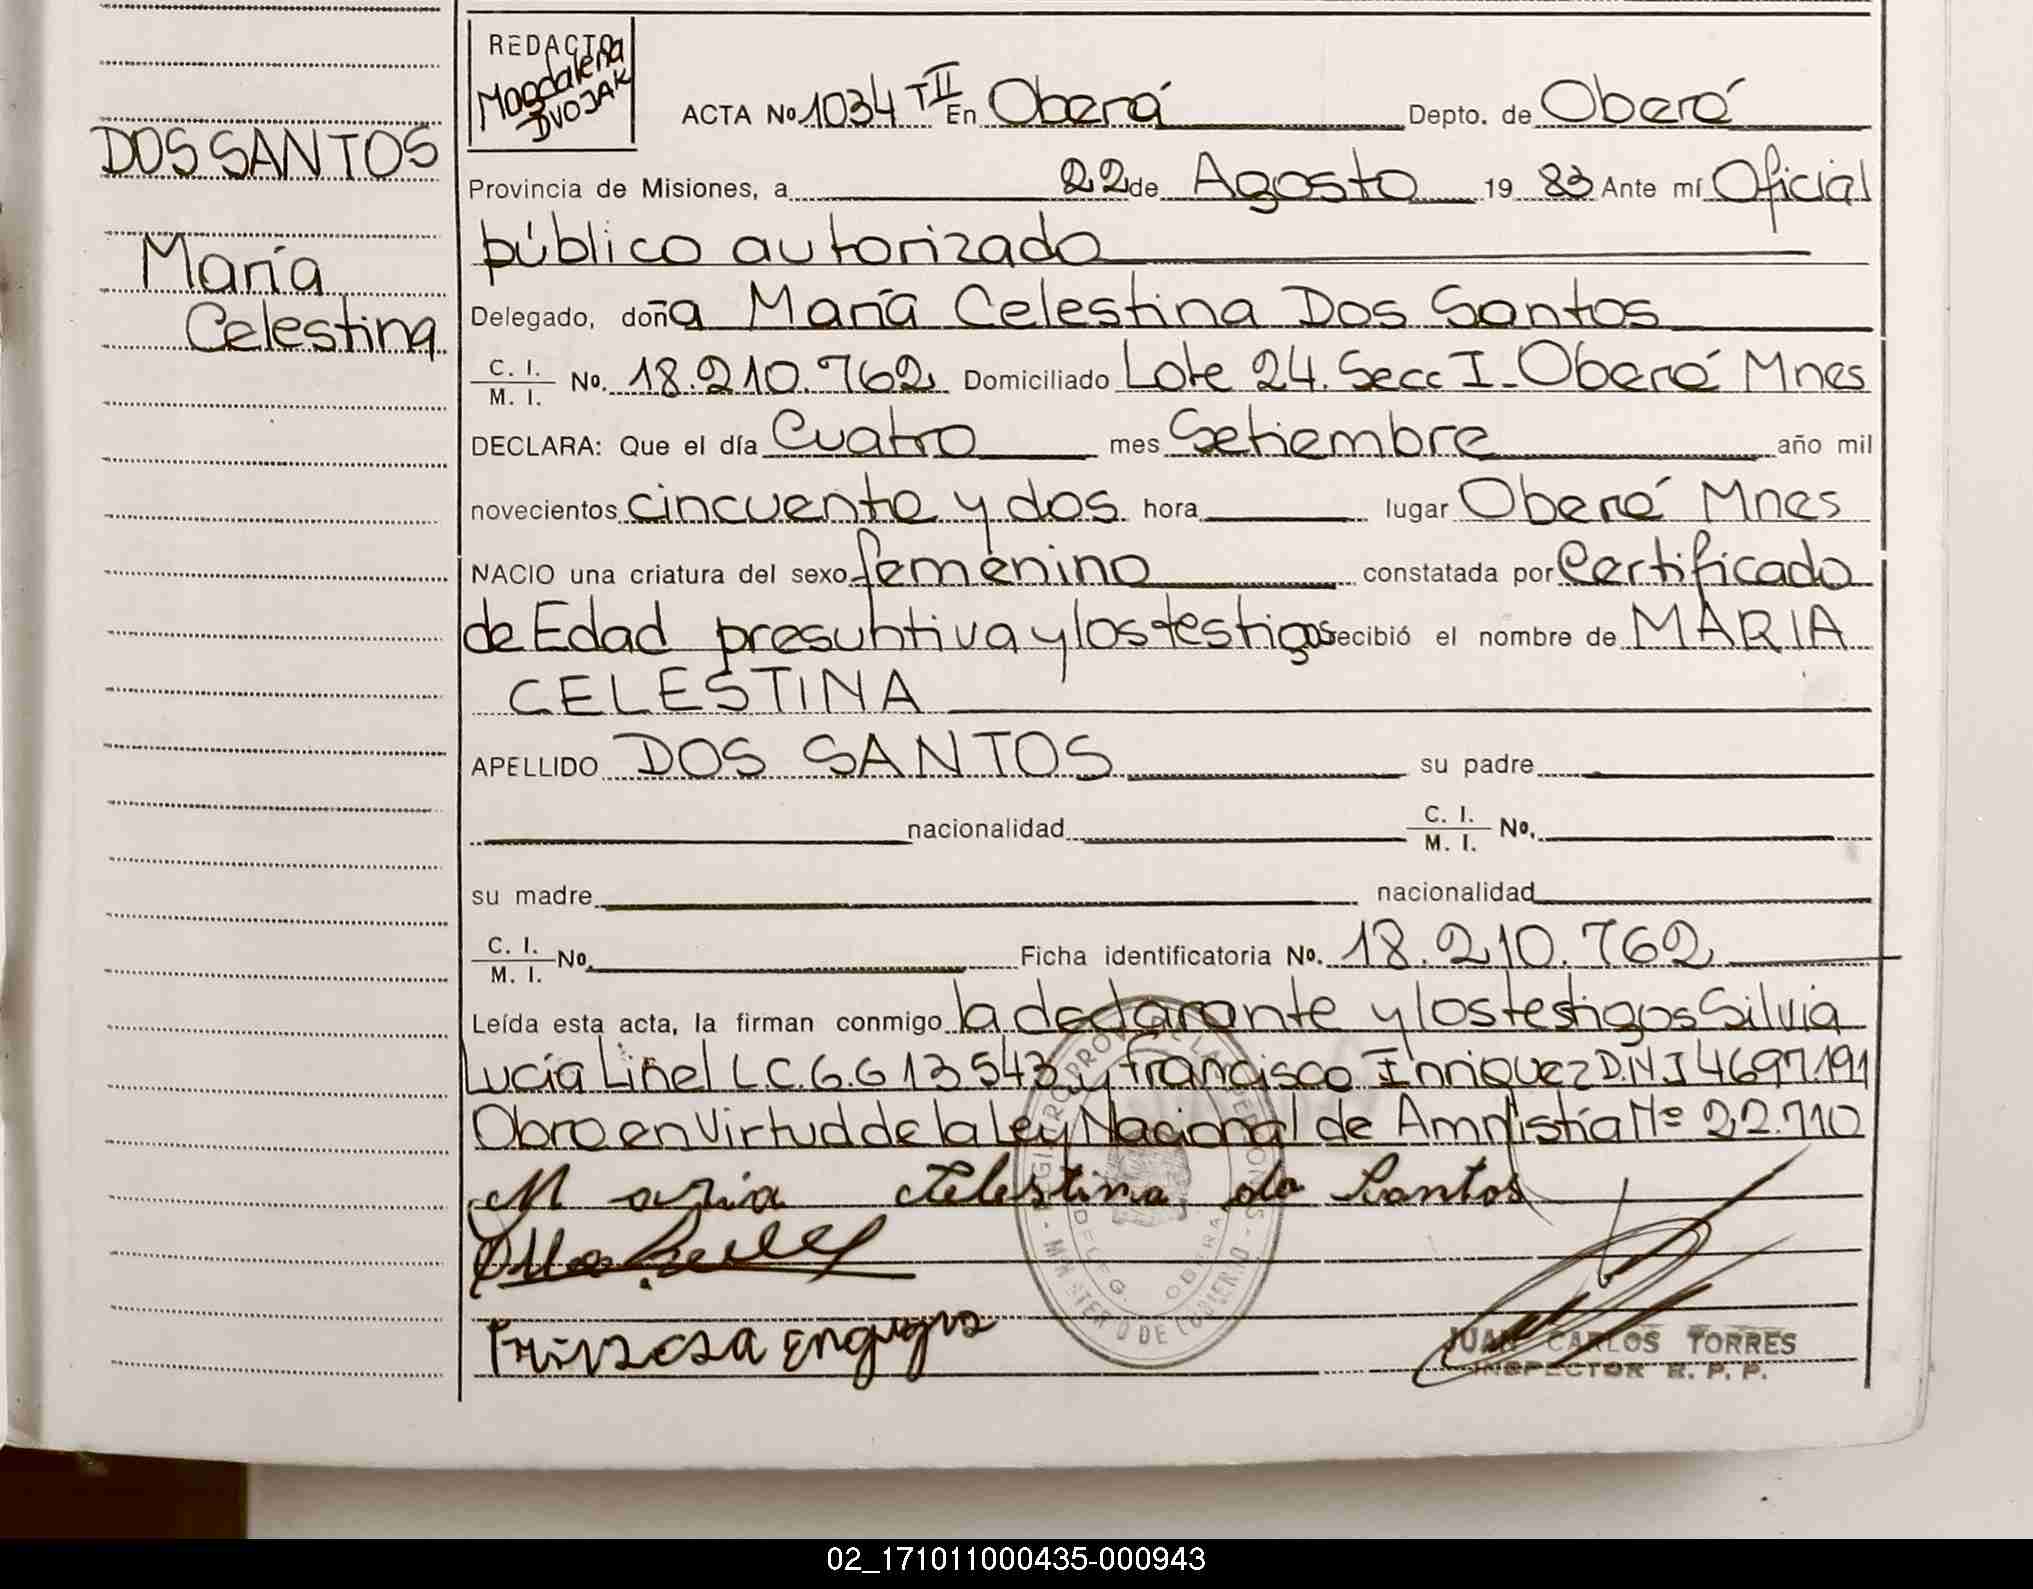 REDACTO
Magdalena
DVOJAK
ACTA No 1034 TII En Oberá Depto. de Oberá
DOS SANTOS
Provincia de Misiones, a 22 de Agosto 19 83 Ante mí Oficial
público autorizado
María
Celestina
Delegado, doña María Celestina Dos Santos
C. I.
M. I. No. 18.210.762 Domiciliado Lote 24. Secc I - Oberá Mnes
DECLARA: Que el día Cuatro mes Setiembre año mil
novecientos cincuenta y dos hora lugar Oberá Mnes
NACIO una criatura del sexo femenino constatada por Certificado
de Edad presuntiva y los testigos recibió el nombre de MARIA
CELESTINA
APELLIDO DOS SANTOS su padre
nacionalidad C. I.
M. I. No.
su madre nacionalidad
C. I.
M. I. No. Ficha identificatoria No. 18.210.762
Leída esta acta, la firman conmigo la declarante y los testigos Silvia
Lucía Liñel L.C. 6.613543 y Francisco Enriquez D.N.I 4697.191
Obro en Virtud de la Ley Nacional de Amnistía Nº 22.710
Maria Celestina do Santos
JUAN CARLOS TORRES
INSPECTOR R. P. P.
MINISTERIO DE GOBIERNO
DELEG. OBERA
02_171011000435-000943